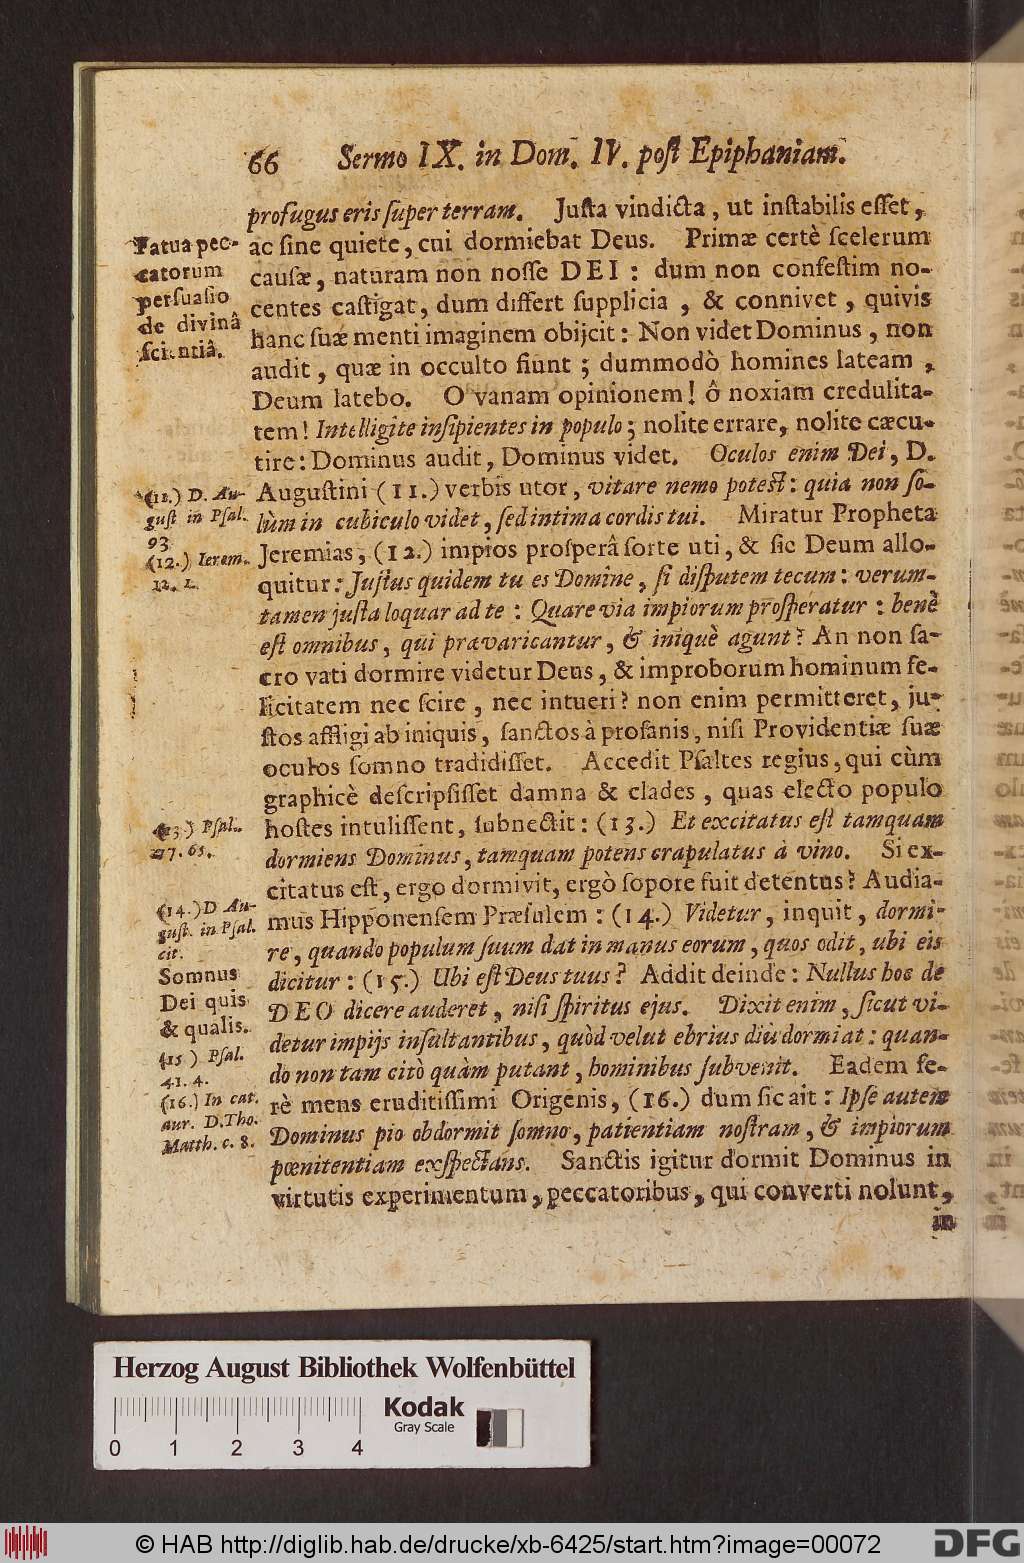 66 Sermo IX. in Dom̄. IV. poſt Epiphaniam̄.
profugus eris ſuper terram. Juſta vindicta, ut inſtabilis eſſet,
ac ſine quiete, cui dormiebat Deus. Primæ certè ſcelerum
cauſæ, naturam non noſſe DEI: dum non confeſtim no-
centes caſtigat, dum differt ſupplicia, & connivet, quivis
hanc ſuæ menti imaginem obijcit: Non videt Dominus, non
audit, quæ in occulto fiunt; dummodò homines lateam,
Deum latebo. O vanam opinionem! ô noxiam credulita-
tem! Intelligite inſipientes in populo; nolite errare, nolite cæcu-
tire: Dominus audit, Dominus videt. Oculos enim Dei, D.
Auguſtini (11.) verbis utor, vitare nemo poteſt: quia non ſo-
lùm in cubiculo videt, ſed intima cordis tui. Miratur Propheta
Jeremias, (12.) impios proſperâ ſorte uti, & ſic Deum allo-
quitur: Juſtus quidem tu es Domine, ſi diſputem tecum: verum-
tamen juſta loquar ad te: Quare via impiorum proſperatur: benè
eſt omnibus, qui prævaricantur, & iniquè agunt? An non ſa-
cro vati dormire videtur Deus, & improborum hominum fe-
licitatem nec ſcire, nec intueri? non enim permitteret, ju-
ſtos affligi ab iniquis, ſanctos à profanis, niſi Providentiæ ſuæ
oculos ſomno tradidiſſet. Accedit Pſaltes regius, qui cùm
graphicè deſcripſiſſet damna & clades, quas electo populo
hoſtes intuliſſent, ſubnectit: (13.) Et excitatus eſt tamquam
dormiens Dominus, tamquam potens crapulatus à vino. Si ex-
citatus eſt, ergo dormivit, ergò ſopore fuit detentus? Audia-
mus Hipponenſem Præſulem: (14.) Videtur, inquit, dormi-
re, quando populum ſuum dat in manus eorum, quos odit, ubi eis
dicitur: (15.) Ubi eſt Deus tuus? Addit deinde: Nullus hoc de
DEO dicere auderet, niſi ſpiritus ejus. Dixit enim, ſicut vi-
detur impijs inſultantibus, quòd velut ebrius diù dormiat: quan-
do non tam citò quàm putant, hominibus ſubvenit. Eadem fe-
rè mens eruditiſſimi Origenis, (16.) dum ſic ait: Ipſe autem
Dominus pio obdormit ſomno, patientiam noſtram, & impiorum
pœnitentiam exſpectans. Sanctis igitur dormit Dominus in
virtutis experimentum, peccatoribus, qui converti nolunt,
in
Fatua pec-
catorum
perſuaſio
de divinâ
ſcientiâ.
(11.) D. Au-
guſt in Pſal.
93
(12.) Ierem.
12. 1.
(13.) Pſal.
77. 65.
(14.) D Au-
guſt. in Pſal.
cit.
Somnus
Dei quis
& qualis.
(15) Pſal.
41. 4.
(16.) In cat.
aur. D. Tho.
Matth. c. 8.
Herzog August Bibliothek Wolfenbüttel
Kodak
Gray Scale
0 1 2 3 4
© HAB http://diglib.hab.de/drucke/xb-6425/start.htm?image=00072
DFG